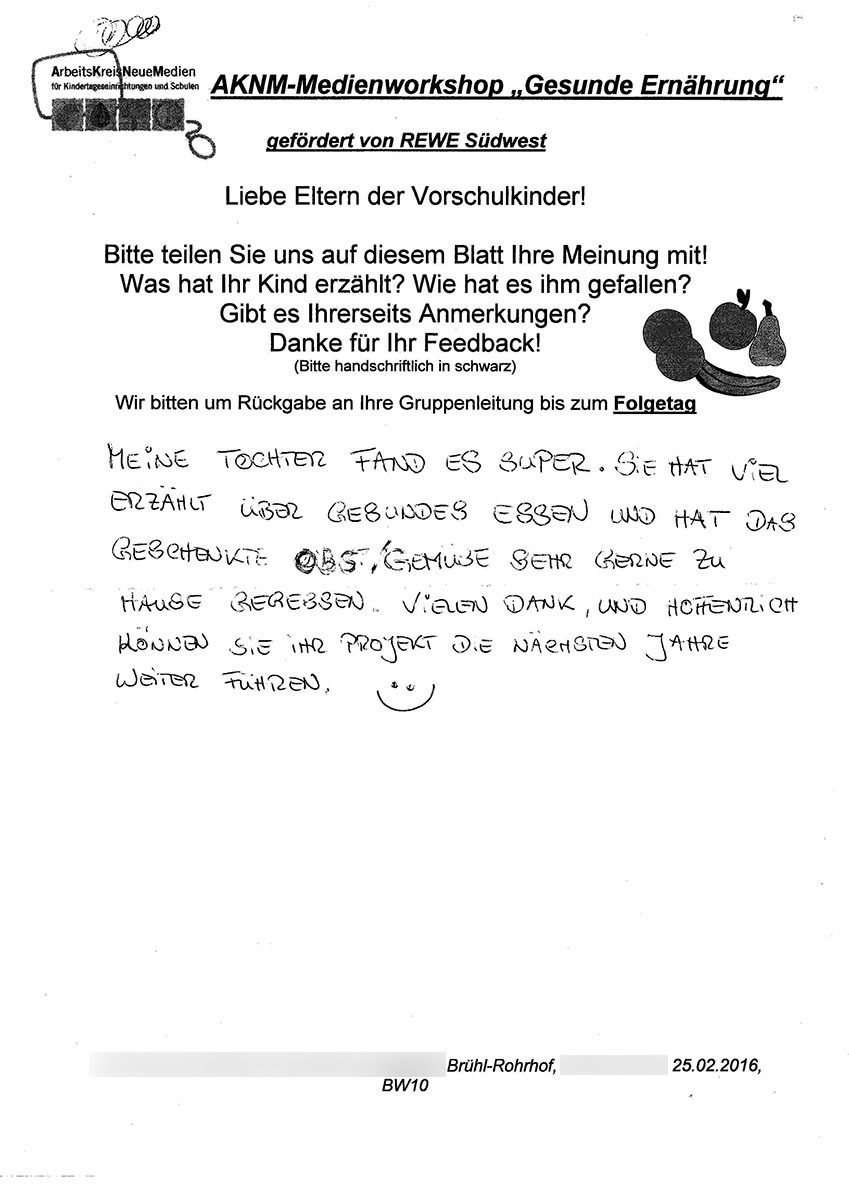 ArbeitsKreisNeueMedien
für Kindertageseinrichtungen und Schulen
AKNM-Medienworkshop „Gesunde Ernährung“
gefördert von REWE Südwest
Liebe Eltern der Vorschulkinder!
Bitte teilen Sie uns auf diesem Blatt Ihre Meinung mit!
Was hat Ihr Kind erzählt? Wie hat es ihm gefallen?
Gibt es Ihrerseits Anmerkungen?
Danke für Ihr Feedback!
(Bitte handschriftlich in schwarz)
Wir bitten um Rückgabe an Ihre Gruppenleitung bis zum Folgetag
MEINE TOCHTER FAND ES SUPER. SIE HAT VIEL
ERZÄHLT ÜBER GESUNDES ESSEN UND HAT DAS
GESCHENKTE OBST/GEMÜSE SEHR GERNE ZU
HAUSE GEGESSEN. VIELEN DANK, UND HOFFENTLICH
KÖNNEN SIE IHR PROJEKT DIE NÄCHSTEN JAHRE
WEITER FÜHREN.
Brühl-Rohrhof, 25.02.2016,
BW10